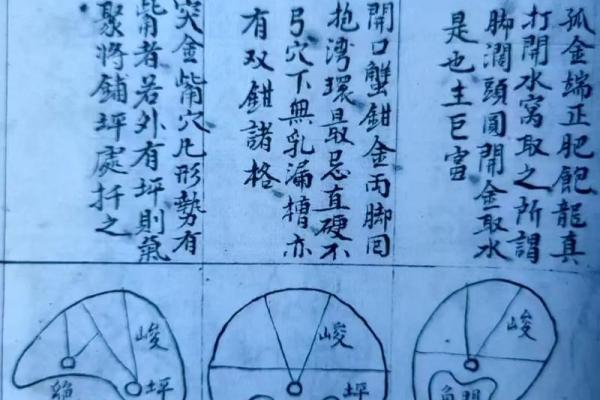 孤金端正肥飽龍真
打開水窩取之所謂
脚濶頭圓開金取水
是也主巨富
開口蟹鉗金两脚回
抱湾環最忌直硬不
弓穴下無乳漏槽亦
有双鉗諸格
突金觜穴凡形勢有
觜者若外有坪則氣
聚將鋪坪處扦之
峻
開
峻
坪
峻
坪